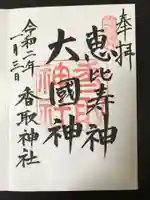 奉拝
恵比寿神
大國神
香取神社
令和二年
一月三日